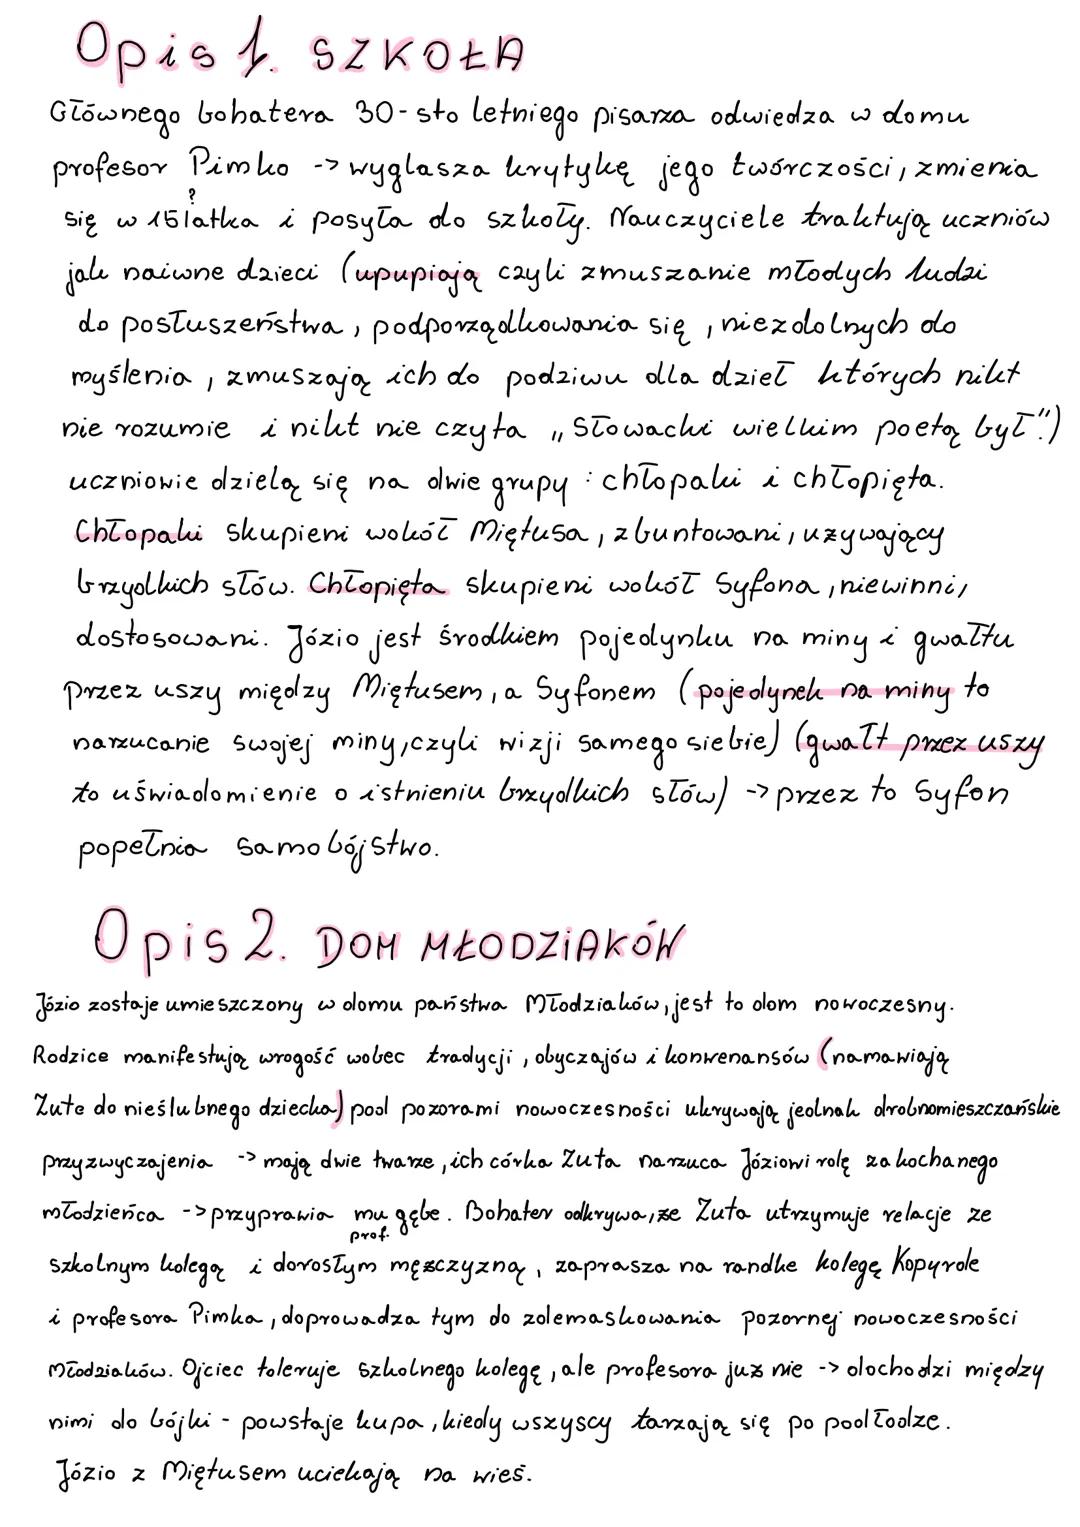 Opis 1. SZKOŁA
Głównego bohatera 30-sto letniego pisarza odwiedza w domu
profesor Pimko -> wygłasza krytykę jego twórczości, zmienia
?
się w 15latka i posyła do szkoły. Nauczyciele traktują uczniów
jak naiwne dzieci (upupiają czyli zmuszanie młodych ludzi
do posłuszeństwa, podporządkowania się, niezdolnych do
myślenia, zmuszają ich do podziwu dla dzieł których nikt
nie rozumie i nikt nie czyta „Słowacki wielkim poetą był".)
uczniowie dzielą się na dwie grupy : chłopaki i chłopięta.
Chłopaki skupieni wokół Miętusa, zbuntowani, używający
brzydkich słów. Chłopięta skupieni wokół Syfona, niewinni,
dostosowani. Józio jest środkiem pojedynku na miny i gwałtu
przez uszy między Miętusem, a Syfonem (pojedynek na miny to
narzucanie swojej miny, czyli wizji samego siebie) (gwałt przez uszy
to uświadomienie o istnieniu brzydkich słów) -> przez to Syfon
popełnia samobójstwo.
Opis 2. DOM MŁODZIAKÓW
Józio zostaje umieszczony w domu państwa Młodziaków, jest to dom nowoczesny.
Rodzice manifestują wrogość wobec tradycji, obyczajów i konwenansów (namawiają
Zute do nieślubnego dziecka) pod pozorami nowoczesności ukrywają jednak drobnomieszczańskie
przyzwyczajenia -> mają dwie twarze, ich córka Zuta narzuca Józiowi rolę zakochanego
młodzieńca -> przyprawia mu gębe. Bohater odkrywa, że Zuta utrzymuje relacje ze
prof.
szkolnym kolegą i dorosłym mężczyzną, zaprasza na randke kolegę Kopyrole
i profesora Pimka, doprowadza tym do zdemaskowania pozornej nowoczesności
Młodziaków. Ojciec toleruje szkolnego kolegę, ale profesora już nie -> dochodzi między
nimi do bójki - powstaje kupa, kiedy wszyscy tarzają się po podłodze.
Józio z Miętusem uciekają na wieś.